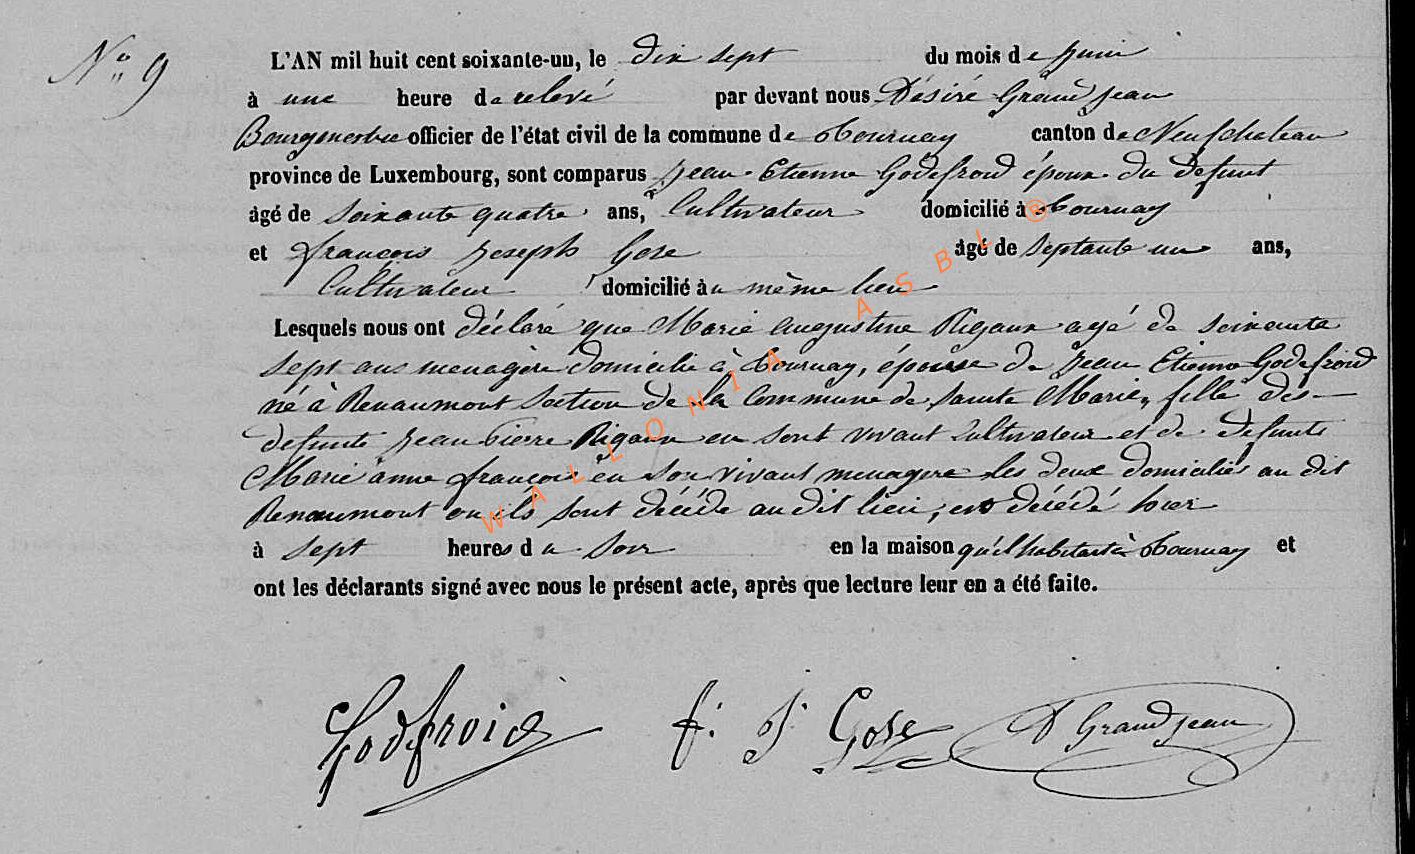 N° 9
L'AN mil huit cent soixante-un, le dix sept du mois de juin
à une heure de relevé par devant nous Désiré Grandjean
Bourgmestre officier de l'état civil de la commune de Tournay canton de Neufchateau
province de Luxembourg, sont comparus Jean Etienne Godefroid époux du defunt
âgé de soixante quatre ans, Cultivateur domicilié à Tournay
et françois Joseph Gose âgé de septante un ans,
Cultivateur domicilié àu même lieu
Lesquels nous ont déclaré que Marie Augustine Rigaux agé de soixante
sept ans menagère domicilié à Tournay, épouse de Jean Etienne Godefroid
né à Renaumont Section de la Commune de Sainte Marie, fille des
defunts Jean Pierre Rigaux en sont vivant Cultivateur et de defunte
Marie anne françois en son vivant menagere les deux domiciliés au dit
Renaumont ou ils sont décédé au dit lieu; est décédé hier
à sept heures du soir en la maison qu'il habitait à Tournay et
ont les déclarants signé avec nous le présent acte, après que lecture leur en a été faite.
Godfroid f. J. Gose D Grandjean
WALLONIA ASBL ®